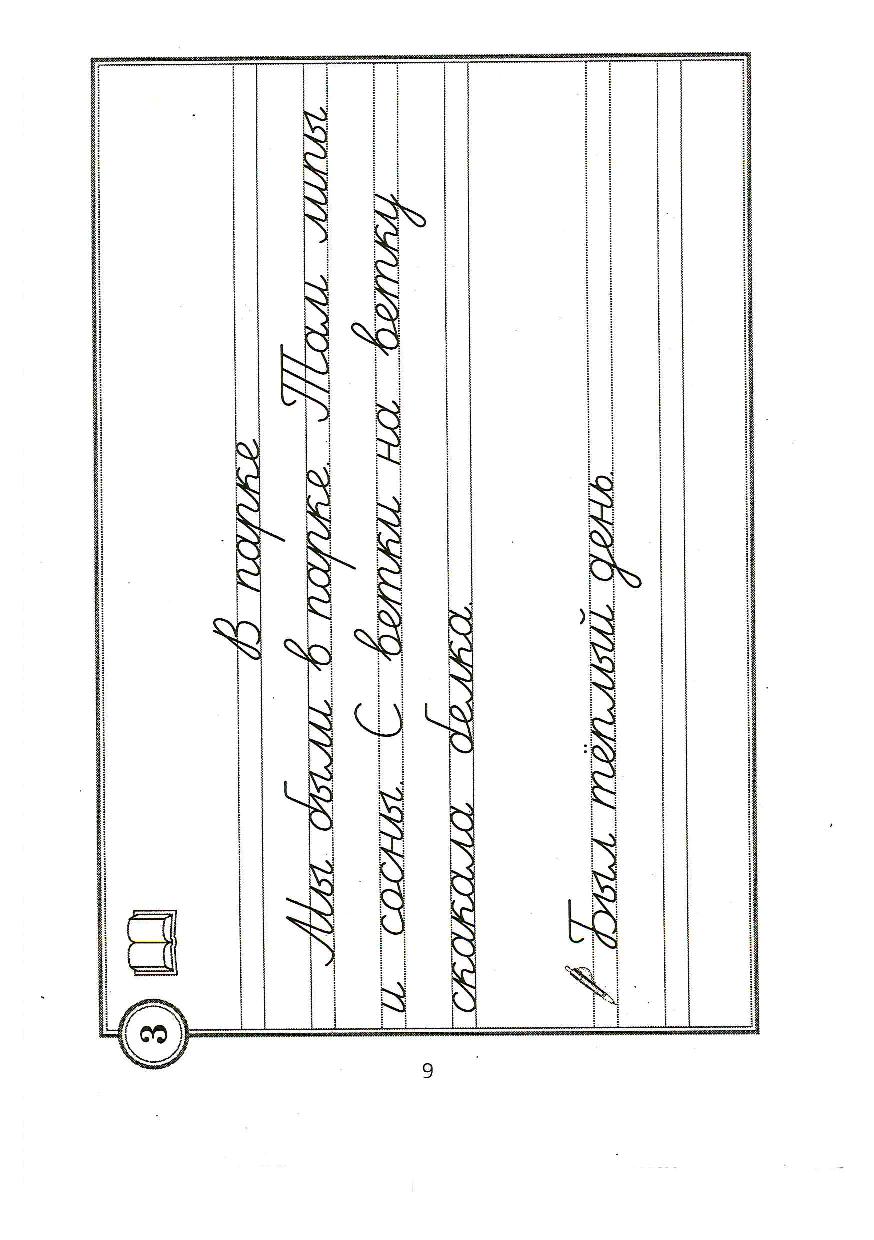 3
В парке
Мы были в парке. Там липы
и сосны. С ветки на ветку
скакала белка.
Был тёплый день.
9